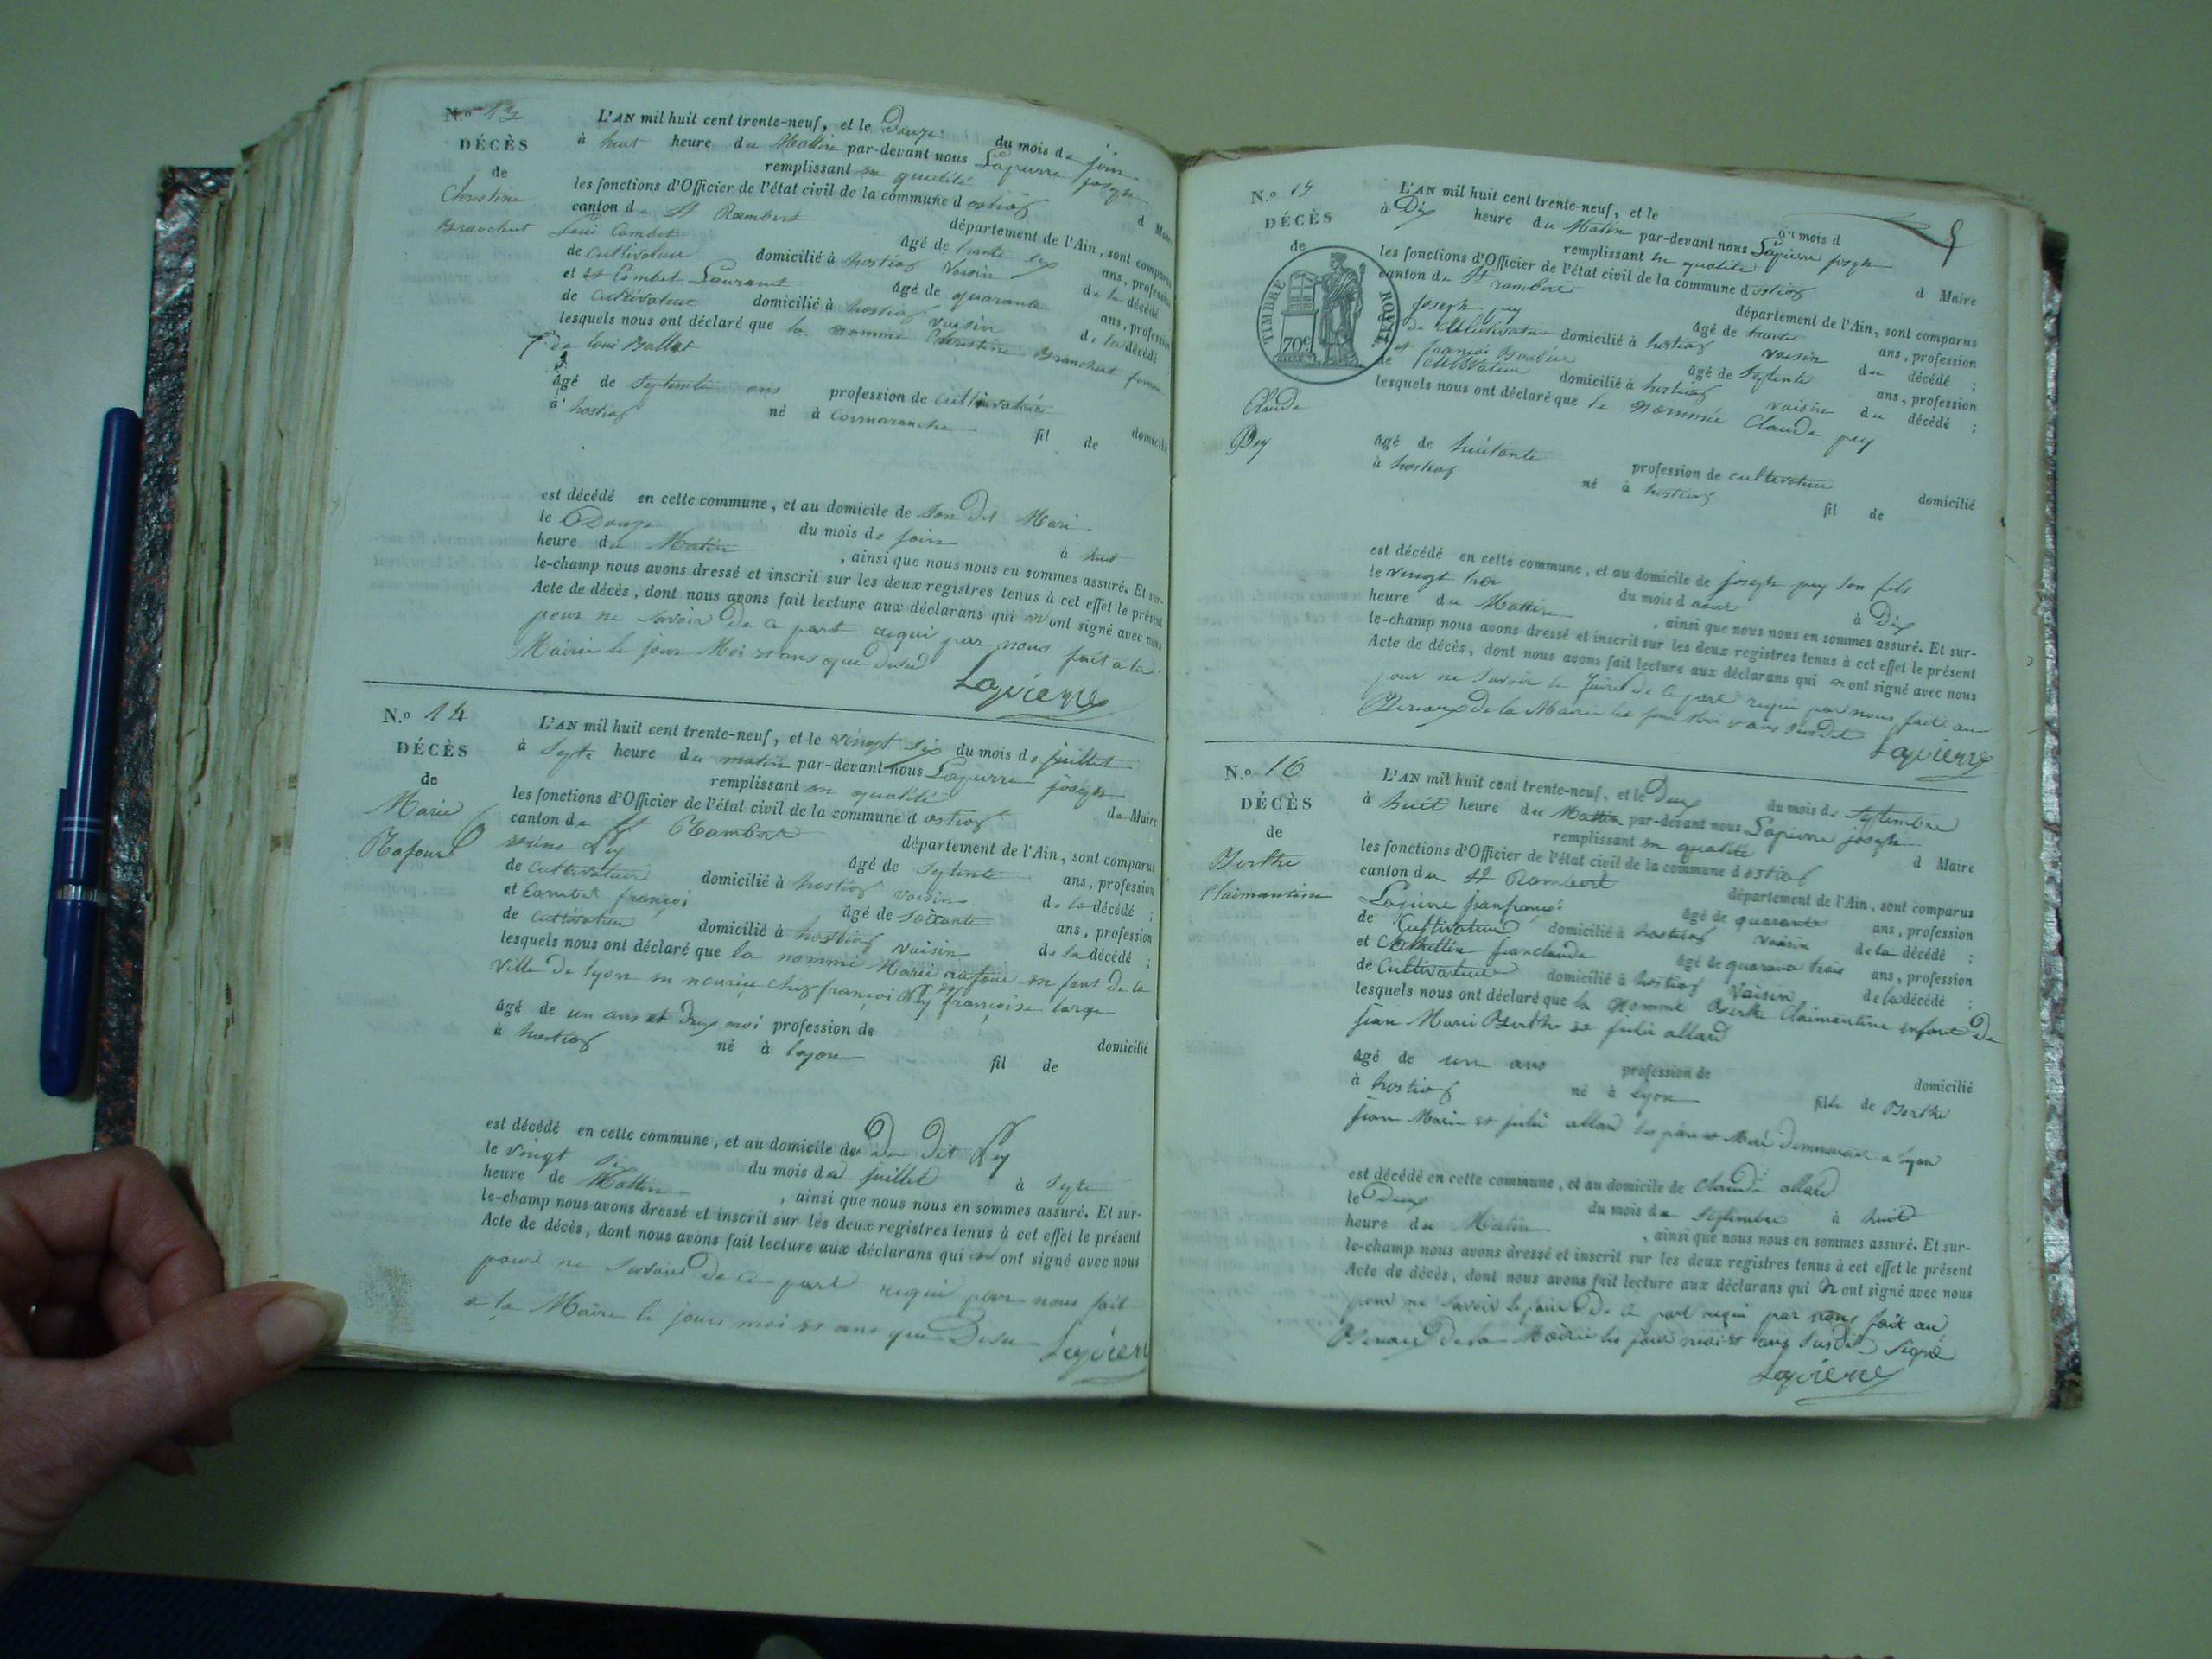 N.º 13
DÉCÈS
de
Christine
Branchut
L'AN mil huit cent trente-neuf, et le Douze du mois de juin
à huit heure du Mattin par-devant nous Lapierre joseph
remplissant en qualité d Maire
les fonctions d'Officier de l'état civil de la commune d ostiaz
canton de St Rambert département de l'Ain, sont comparus
Loui Combet âgé de trante six ans, profession
de Cultivateur domicilié à hostiaz voisin de la décédé
et St Combet Laurant âgé de quarante ans, profession
de Cultivateur domicilié à hostiaz voisin de la décédé
lesquels nous ont déclaré que la nommé Christine Branchut femme
de loui Ballet
âgé de septente ans profession de cultivatrice domicilié
à hostiaz né à Cormaranche fil de
est décédé en cette commune, et au domicile de son dit Mari
le Douze du mois de juin à huit
heure du Matin, ainsi que nous nous en sommes assuré. Et sur-
le-champ nous avons dressé et inscrit sur les deux registres tenus à cet effet le présent
Acte de décès, dont nous avons fait lecture aux déclarans qui n ont signé avec nous
pour ne savoir de ce part requi par nous fait a la
Mairie le jour Moi et ans que desu
Lapierre
N.º 14
DÉCÈS
de
Marie
Rafour
L'AN mil huit cent trente-neuf, et le vingt six du mois de juillet
à septe heure du matin par-devant nous Lapierre joseph
remplissant en qualité de Maire
les fonctions d'Officier de l'état civil de la commune d ostiaz
canton de St Rambert département de l'Ain, sont comparus
âgé de Septente ans, profession
de Cultivateur domicilié à hostiaz voisin de la décédé ;
et Combet françoi âgé de soixante ans, profession
de Cultivateur domicilié à hostiaz voisin de la décédé ;
lesquels nous ont déclaré que la nommé Marie rafour en fant de la
ville de lyon en nouriçe chez françoi françoise large
âgé de un ans et deux moi profession de domicilié
à hostiaz né à lyon fil de
est décédé en cette commune, et au domicile de du dit
le vingt six du mois de juillet à septe
heure de Mattin, ainsi que nous nous en sommes assuré. Et sur-
le-champ nous avons dressé et inscrit sur les deux registres tenus à cet effet le présent
Acte de décès, dont nous avons fait lecture aux déclarans qui n ont signé avec nous
pour ne savoir de ce part requi par nous fait
a la Mairie le jours moi et ans que Desu
Lapierre
5
N.º 15
DÉCÈS
de
TIMBRE ROYAL
70c
Claude
Pey
L'AN mil huit cent trente-neuf, et le du mois d
à Dix heure du Matin par-devant nous Lapierre joseph
remplissant en qualité d Maire
les fonctions d'Officier de l'état civil de la commune d ostiaz
canton de St rambert département de l'Ain, sont comparus
joseph pey âgé de trante ans, profession
de Cultivateur domicilié à hostiaz voisin du décédé ;
et françois âgé de septente ans, profession
de Cultivateur domicilié à hostiaz voisin du décédé ;
lesquels nous ont déclaré que le nommée Claude pey
âgé de huitante profession de cultivateur domicilié
à hostiaz né à hostiaz fil de
est décédé en cette commune, et au domicile de joseph pey son fils
le vingt du mois d aout à Dix
heure du Mattin, ainsi que nous nous en sommes assuré. Et sur-
le-champ nous avons dressé et inscrit sur les deux registres tenus à cet effet le présent
Acte de décès, dont nous avons fait lecture aux déclarans qui n ont signé avec nous
pour ne savoir le faire de ce part requi par nous fait au
Bureau de la Mairie les jour Moi et ans susdit
Lapierre
N.º 16
DÉCÈS
de
Berthe
Claimantine
L'AN mil huit cent trente-neuf, et le Deux du mois de Septembre
à huit heure du Mattin par-devant nous Lapierre joseph
remplissant en qualité d Maire
les fonctions d'Officier de l'état civil de la commune d ostiaz
canton du St Rambert département de l'Ain, sont comparus
Lapierre jeanfrançoi âgé de quarante ans, profession
de Cultivateur domicilié à hostiaz voisin de la décédé ;
et jeanclaude âgé de quarante trois ans, profession
de Cultivateur domicilié à hostiaz Voisin de la décédé ;
lesquels nous ont déclaré que la nommé Berthe Claimantine enfant de
jean Marie Berthe et julie allard
âgé de un ans profession de domicilié
à hostiaz né à Lyon fille de Berthe
jean Marie et julie allard les père et Mère demmurant a lyon
est décédé en cette commune, et au domicile de Claude allard
le Deux du mois de Septembre à huit
heure du Matin, ainsi que nous nous en sommes assuré. Et sur-
le-champ nous avons dressé et inscrit sur les deux registres tenus à cet effet le présent
Acte de décès, dont nous avons fait lecture aux déclarans qui n ont signé avec nous
pour ne savoir le faire de ce part requi par nous fait au
Bureau de la Mairie les jour moi et ans susdit Signé
Lapierre